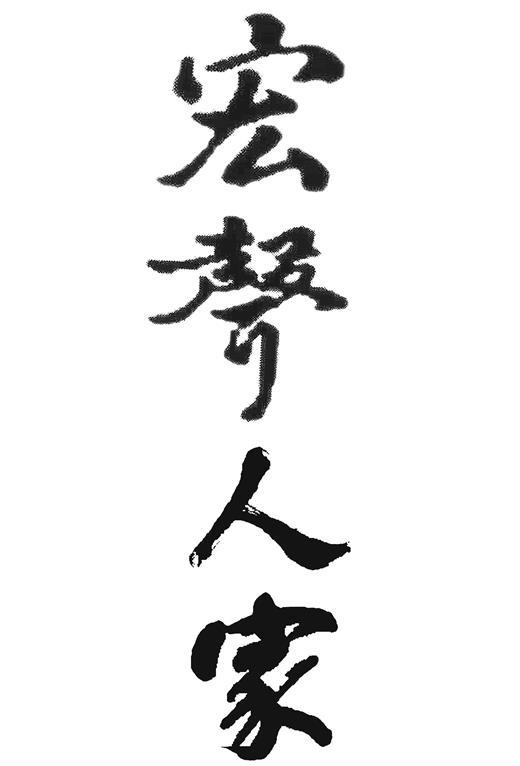 宏聲人家